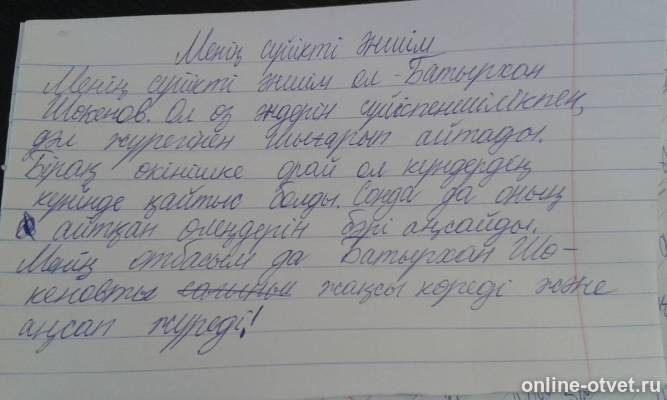 Менің сүйікті әншім
Менің сүйікті әншім ол - Батырхан
Шөкенов. Ол өз әндерін сүйіспеншілікпен,
дәл жүрегінен шығарып айтады.
Бірақ өкінішке орай ол күндердең
күнінде қайтыс болды. Сонда да оның
айтқан өлеңдерін бәрі аңсайды.
Мейң отбасым да Батырхан Шө-
кеновты жақсы көреді және
аңсап жүреді!
online-otvet.ru